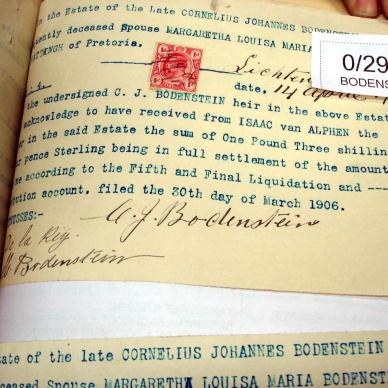 in the Estate of the Late CORNELIUS JOHANNES BODENSTEIN
deceased Spouse MARGARETHA LOUISA MARIA
of Pretoria.
0/29
BODENS
Lichten
date. 14 April
the undersigned C. J. BODENSTEIN heir in the above Estat
acknowledge to have received from ISAAC van ALPHEN the
in the said Estate the sum of One Pound Three shillin
pence Sterling being in full settlement of the amount
me according to the Fifth and Final Liquidation and ---
ution account, filed the 30th day of March 1906.
ESSES:-
C. J. Bodenstein
de la Rey
Bodenstein
tate of the late CORNELIUS JOHANNES BODENSTEIN
eceased Spouse MARGARETHA LOUISA MARIA BODENST